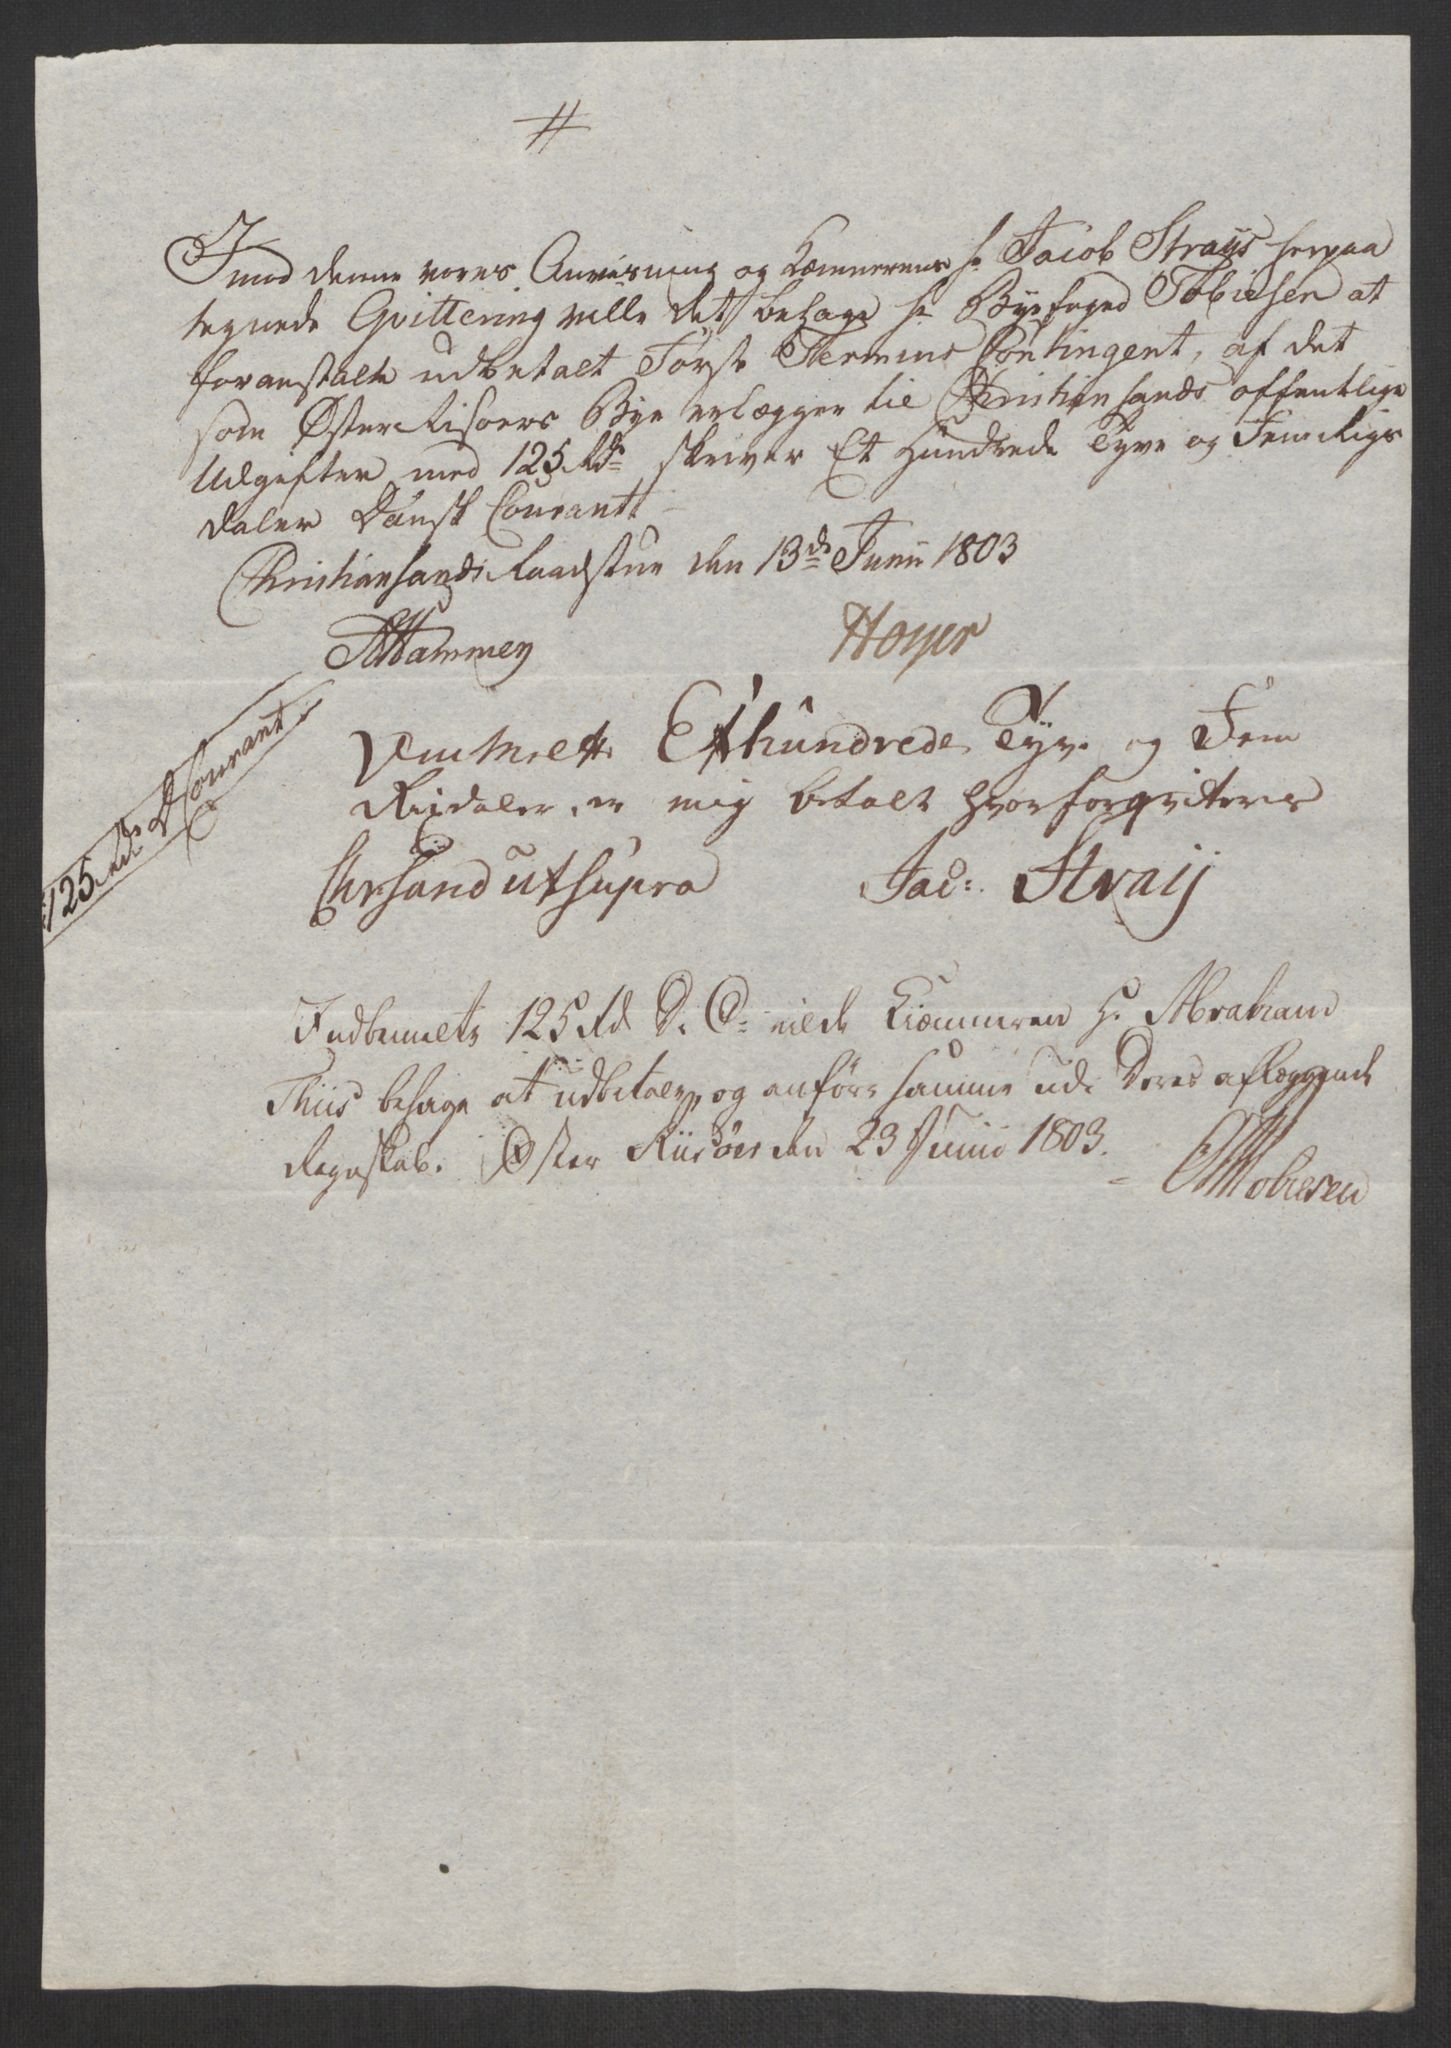 Imod denne vores Anviisning og Kæmnerens Hr Jacob Straijs herpaa
tegnede Qvittering ville det behage Hr Byefoged Tobiesen at
foranstalte udbetalt Første Termins Contingent, af det
som Øster Risøers Bye erlægger til Christiansands offentlige
Udgifter med 125 Rdr skriver Et Hundrede Tyve og Fem Rigs
daler Dansk Courantt
Christiansands Raadstue den 13de Junii 1803
Hammer Hoyer
125 Rdr D Courant
Ethundrede Tyve og Fem
Rixdaler, er mig betalt hvorfor qviteres
Chrsand ut supra Jac: Straij
Indbemelte 125 Rd D. C: vilde Kiæmneren Hr. Abraham
Thiis behage at udbetale, og anføre samme udi Deres aflæggende
Regnskab. Øster Riisøer den 23 Junii 1803.
Tobiesen